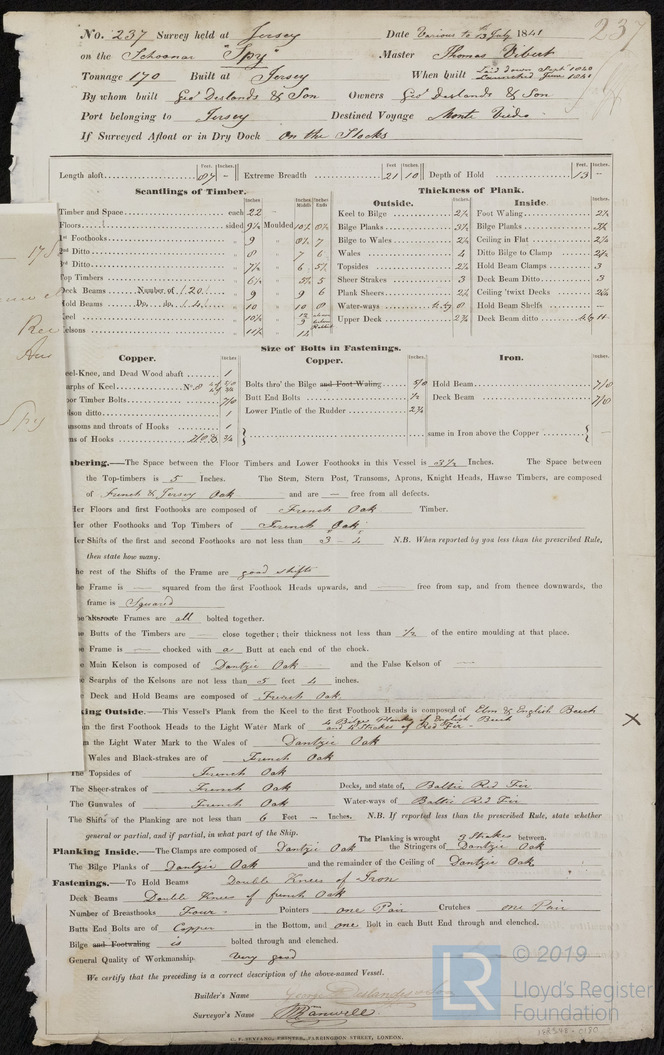 No. 237 Survey held at Jersey Date Various to 13 July 1841 237
on the Schooner "Spy" Master Thomas Vibert
Tonnage 170 Built at Jersey When built Laid down Sept 1840 Launched June 1841
By whom built Geo Deslands & Son Owners Geo Deslands & Son
Port belonging to Jersey Destined Voyage Monte Video
If Surveyed Afloat or in Dry Dock On the Stocks
Length aloft 87 - Extreme Breadth 21 10 Depth of Hold 13 -
Scantlings of Timber. Thickness of Plank.
Outside. Inside.
Timber and Space each 22 Keel to Bilge 2½ Foot Waling 2½
Floors sided 9½ Moulded 10½ 8½ Bilge Planks 3½ Bilge Planks 3½
1st Foothooks 9 8½ 7 Bilge to Wales 2½ Ceiling in Flat 2½
2nd Ditto 8 7 6 Wales 4 Ditto Bilge to Clamp 2½
3rd Ditto 7½ 6 5½ Topsides 2½ Hold Beam Clamps 3
Top Timbers 6½ 5½ 5 Sheer Strakes 3 Deck Beam Ditto 3
Deck Beams Number of (20) 9 9 6 Plank Sheers 2½ Ceiling 'twixt Decks
Hold Beams Do. do. (4) 10 10 8 Water-ways 8 Hold Beam Shelfs -
Keel 10½ 12 Upper Deck 2¾ Deck Beam ditto
Kelsons 11½ 12
Size of Bolts in Fastenings.
Copper. Copper. Iron.
Heel-Knee, and Dead Wood abaft 1
Scarphs of Keel No. 8 Bolts thro' the Bilge and Foot Waling 5/8 Hold Beam 7/8
Floor Timber Bolts 7/8 Butt End Bolts ½ Deck Beam 7/8
Kelson ditto 1 Lower Pintle of the Rudder 2¼
Transoms and throats of Hooks 1
Arms of Hooks ¾ same in Iron above the Copper
Timbering.—The Space between the Floor Timbers and Lower Foothooks in this Vessel is 3½ Inches. The Space between
the Top-timbers is 5 Inches. The Stem, Stern Post, Transoms, Aprons, Knight Heads, Hawse Timbers, are composed
of French & Jersey Oak and are — free from all defects.
Her Floors and first Foothooks are composed of French Oak Timber.
Her other Foothooks and Top Timbers of French Oak
Her Shifts of the first and second Foothooks are not less than 3 - 4 N.B. When reported by you less than the prescribed Rule,
then state how many.
The rest of the Shifts of the Frame are good shifts
The Frame is — squared from the first Foothook Heads upwards, and — free from sap, and from thence downwards, the
frame is Squared
The alternate Frames are all bolted together.
The Butts of the Timbers are — close together; their thickness not less than ½ of the entire moulding at that place.
The Frame is — chocked with a Butt at each end of the chock.
The Main Kelson is composed of Dantzic Oak and the False Kelson of —
The Scarphs of the Kelsons are not less than 5 feet 4 inches.
The Deck and Hold Beams are composed of French Oak
Planking Outside.—This Vessel's Plank from the Keel to the first Foothook Heads is composed of Elm & English Beech
From the first Foothook Heads to the Light Water Mark of 4 Bilge Planks of English Beech and 4 Strakes of Red Fir - X
From the Light Water Mark to the Wales of Dantzic Oak
The Wales and Black-strakes are of French Oak
The Topsides of French Oak
The Sheer-strakes of French Oak Decks, and state of, Baltic Red Fir
The Gunwales of French Oak Water-ways of Baltic Red Fir
The Shifts of the Planking are not less than 6 Feet — Inches. N.B. If reported less than the prescribed Rule, state whether
general or partial, and if partial, in what part of the Ship. The Planking is wrought 3 Strakes between.
Planking Inside.—The Clamps are composed of Dantzic Oak the Stringers of Dantzic Oak
The Bilge Planks of Dantzic Oak and the remainder of the Ceiling of Dantzic Oak
Fastenings.—To Hold Beams Double Knees of Iron
Deck Beams Double Knees of french Oak
Number of Breasthooks Four - Pointers one Pair Crutches one Pair
Butts End Bolts are of Copper in the Bottom, and one Bolt in each Butt End through and clenched.
Bilge and Footwaling is bolted through and clenched.
General Quality of Workmanship. Very good
We certify that the preceding is a correct description of the above-named Vessel.
Builder's Name George Deslandes
Surveyor's Name
C. F. SEYFANG, PRINTER, FARRINGDON STREET, LONDON.
LR © 2019
Lloyd's Register
Foundation
Spy